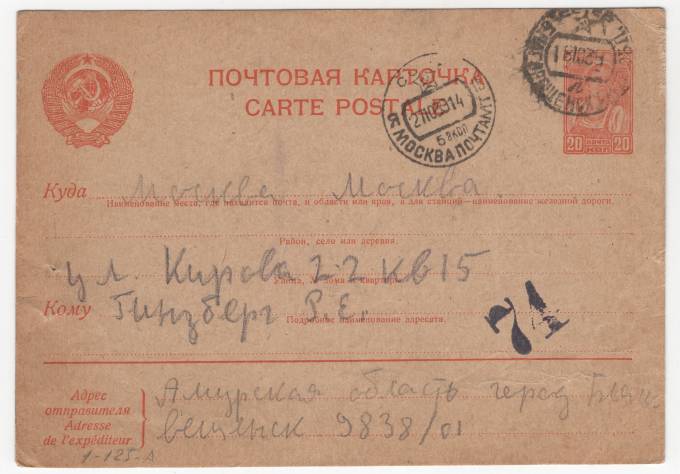 ПОЧТОВАЯ КАРТОЧКА
CARTE POSTALE
МОСКВА ПОЧТАМТ
20 ПОЧТА КОП 20
Куда Москва Москва.
Наименование места, где находится почта, и области или края, а для станций—наименование железной дороги.
Район, село или деревня.
ул. Кирова 22 кв 15
Улица, № дома и квартиры.
Кому Гинзберг Р. Е.
Подробное наименование адресата.
71
Адрес отправителя
Adresse de l'expéditeur
Амурская область город
вещенск 9838/01
1-125-А